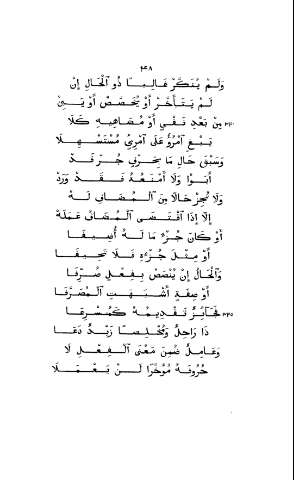 ٢٨
وَلَمْ يُنَكَّرْ غَالِبًا ذُو الْحَالِ إِنْ
لَمْ يَتَأَخَّرْ أَوْ يُخَصَّصْ أَوْ يَبِنْ
مِنْ بَعْدِ نَفْيٍ أَوْ مُضَاهِيهِ كَلَا ٣٤٠
يَبْغِ امْرُؤٌ عَلَى امْرِئٍ مُسْتَسْهِلَا
وَسَبْقَ حَالٍ مَا بِحَرْفٍ جُرَّ قَدْ
أَبَوْا وَلَا أَمْنَعُهُ فَقَدْ وَرَدْ
وَلَا تُجِزْ حَالًا مِنَ الْمُضَافِ لَهُ
إِلَّا إِذَا اقْتَضَى الْمُضَافُ عَمَلَهُ
أَوْ كَانَ جُزْءَ مَا لَهُ أُضِيفَا
أَوْ مِثْلَ جُزْئِهِ فَلَا تَحِيفَا
وَالْحَالُ إِنْ يُنْصَبْ بِفِعْلٍ صُرِّفَا
أَوْ صِفَةٍ أَشْبَهَتِ الْمُصَرَّفَا
فَجَائِزٌ تَقْدِيمُهُ كَمُسْرِعَا ٣٤٥
ذَا رَاحِلٌ وَمُخْلِصًا زَيْدٌ دَعَا
وَعَامِلٌ ضُمِّنَ مَعْنَى الْفِعْلِ لَا
حُرُوفَهُ مُؤَخَّرًا لَنْ يَعْمَلَا